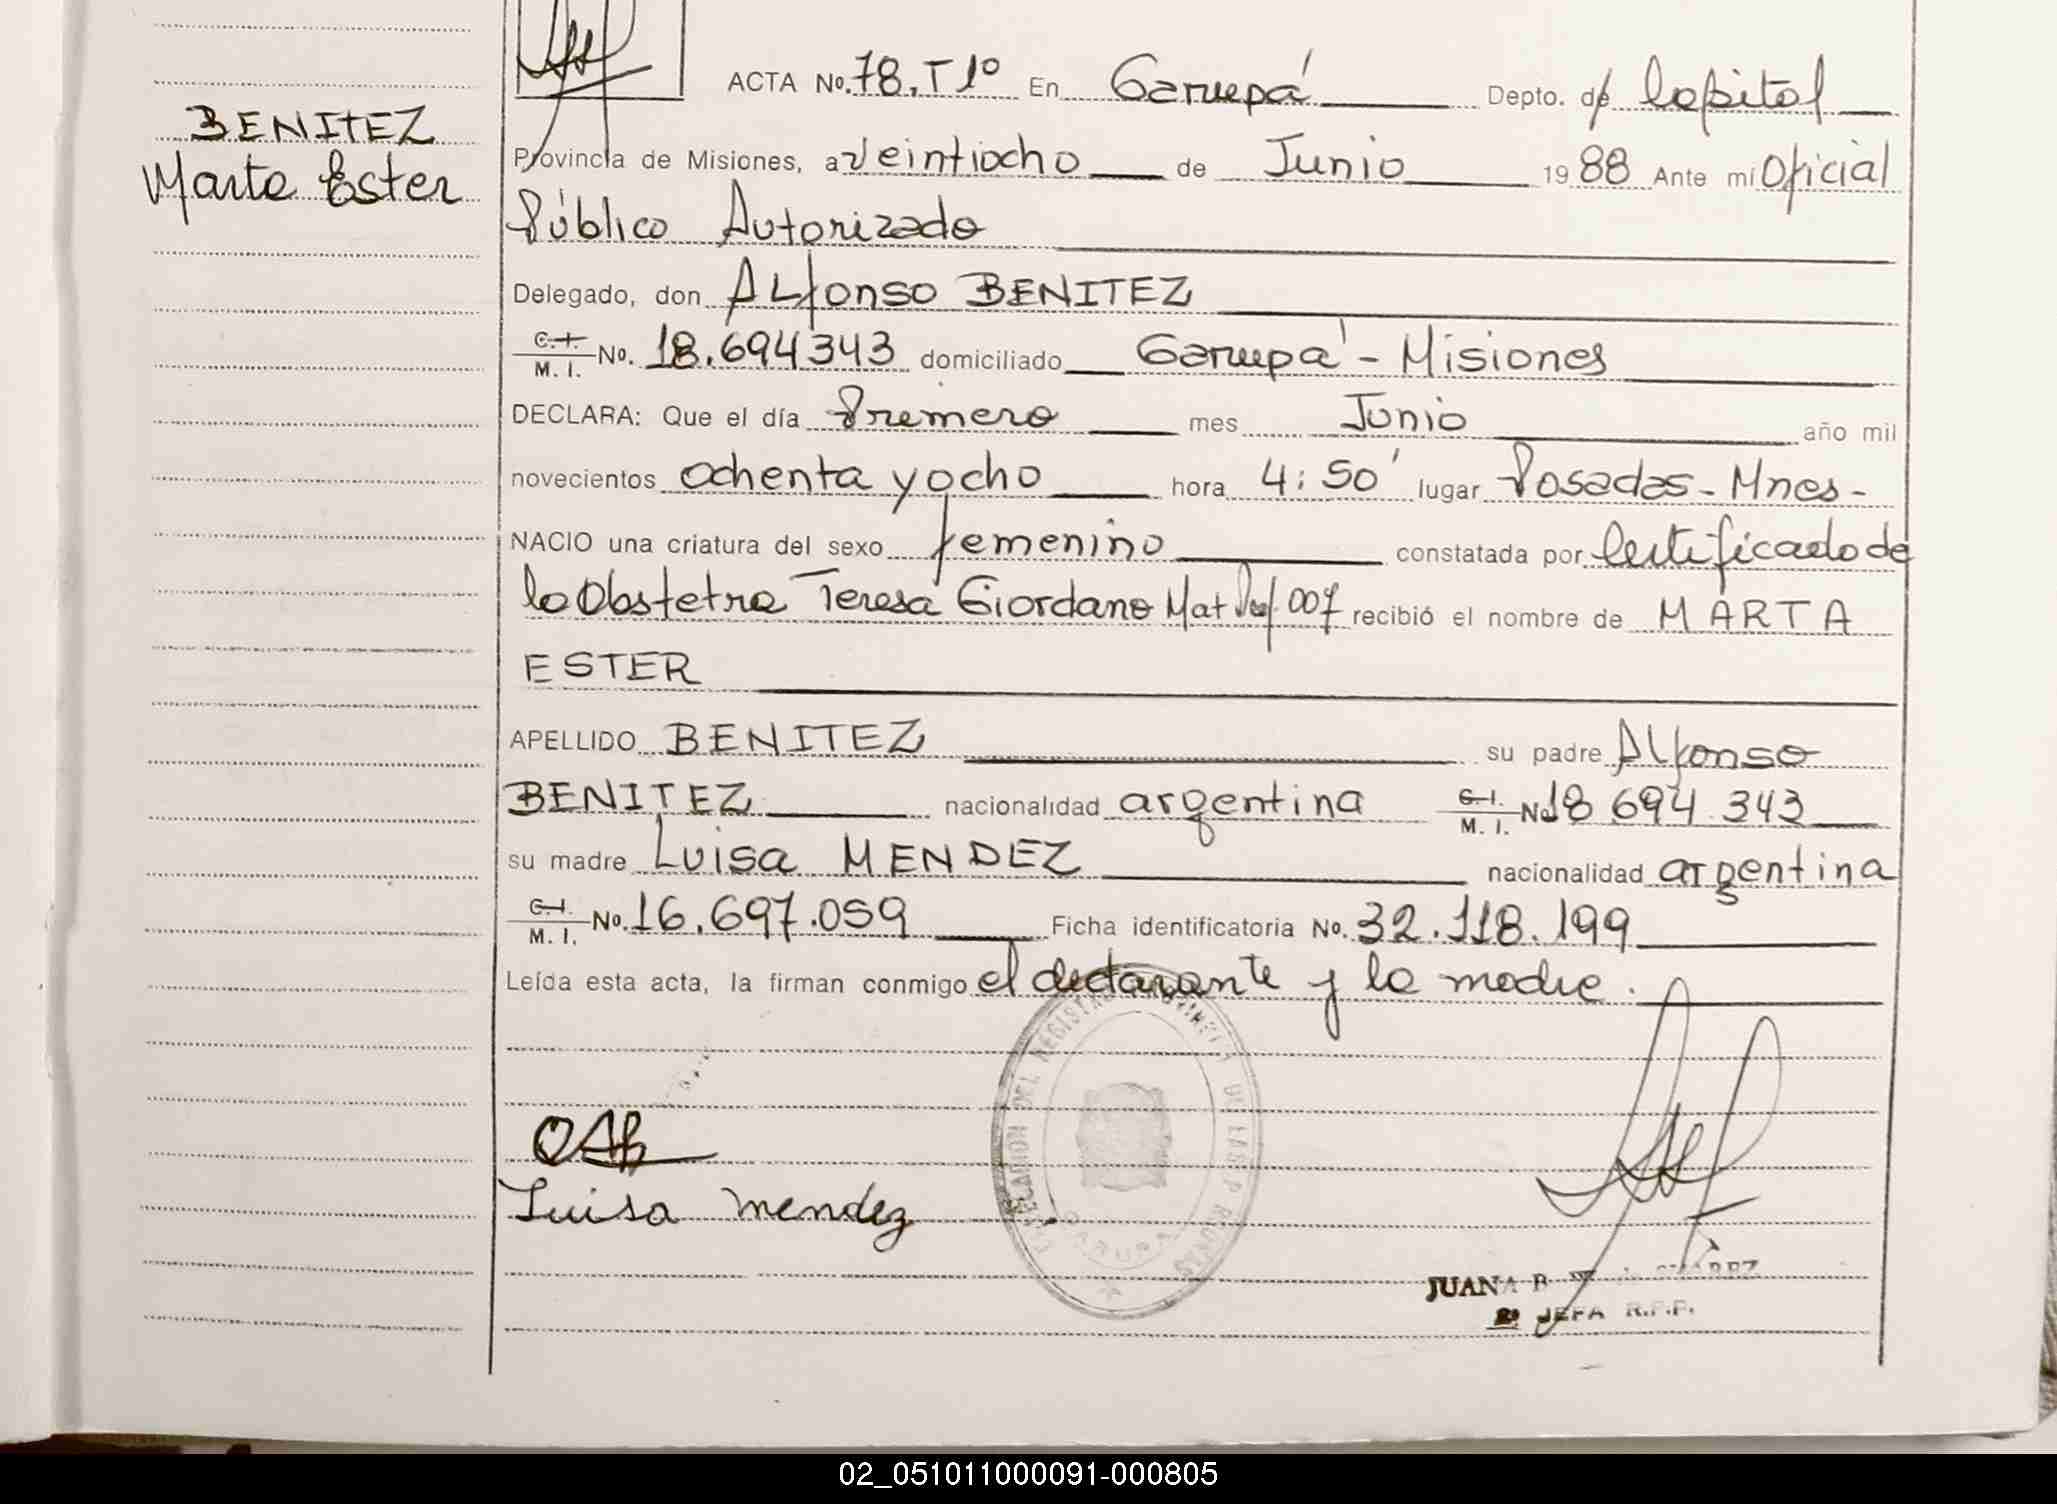 BENITEZ
Marta Ester
ACTA No. 78. T 1º En Garupá Depto. de Capital
Provincia de Misiones, a veintiocho de Junio 1988 Ante mí Oficial
Público Autorizado
Delegado, don ALfonso BENITEZ
C. I. M. I. No. 18.694343 domiciliado Garupá - Misiones
DECLARA: Que el día Primero mes Junio año mil
novecientos ochenta y ocho hora 4:50' lugar Posadas - Mnes -
NACIO una criatura del sexo femenino constatada por Certificado de
la Obstetra Teresa Giordano Mat 007 recibió el nombre de MARTA
ESTER
APELLIDO BENITEZ su padre ALfonso
BENITEZ nacionalidad argentina C. I. M. I. No 18 694.343
su madre Luisa MENDEZ nacionalidad argentina
C. I. M. I. No. 16.697.059 Ficha identificatoria No. 32.118.199
Leída esta acta, la firman conmigo el declarante y la madre.
OAB
Luisa mendez
DEL REGISTRO DE LAS P
GARUPA
JUANA B
JEFA R.P.P.
02_051011000091-000805